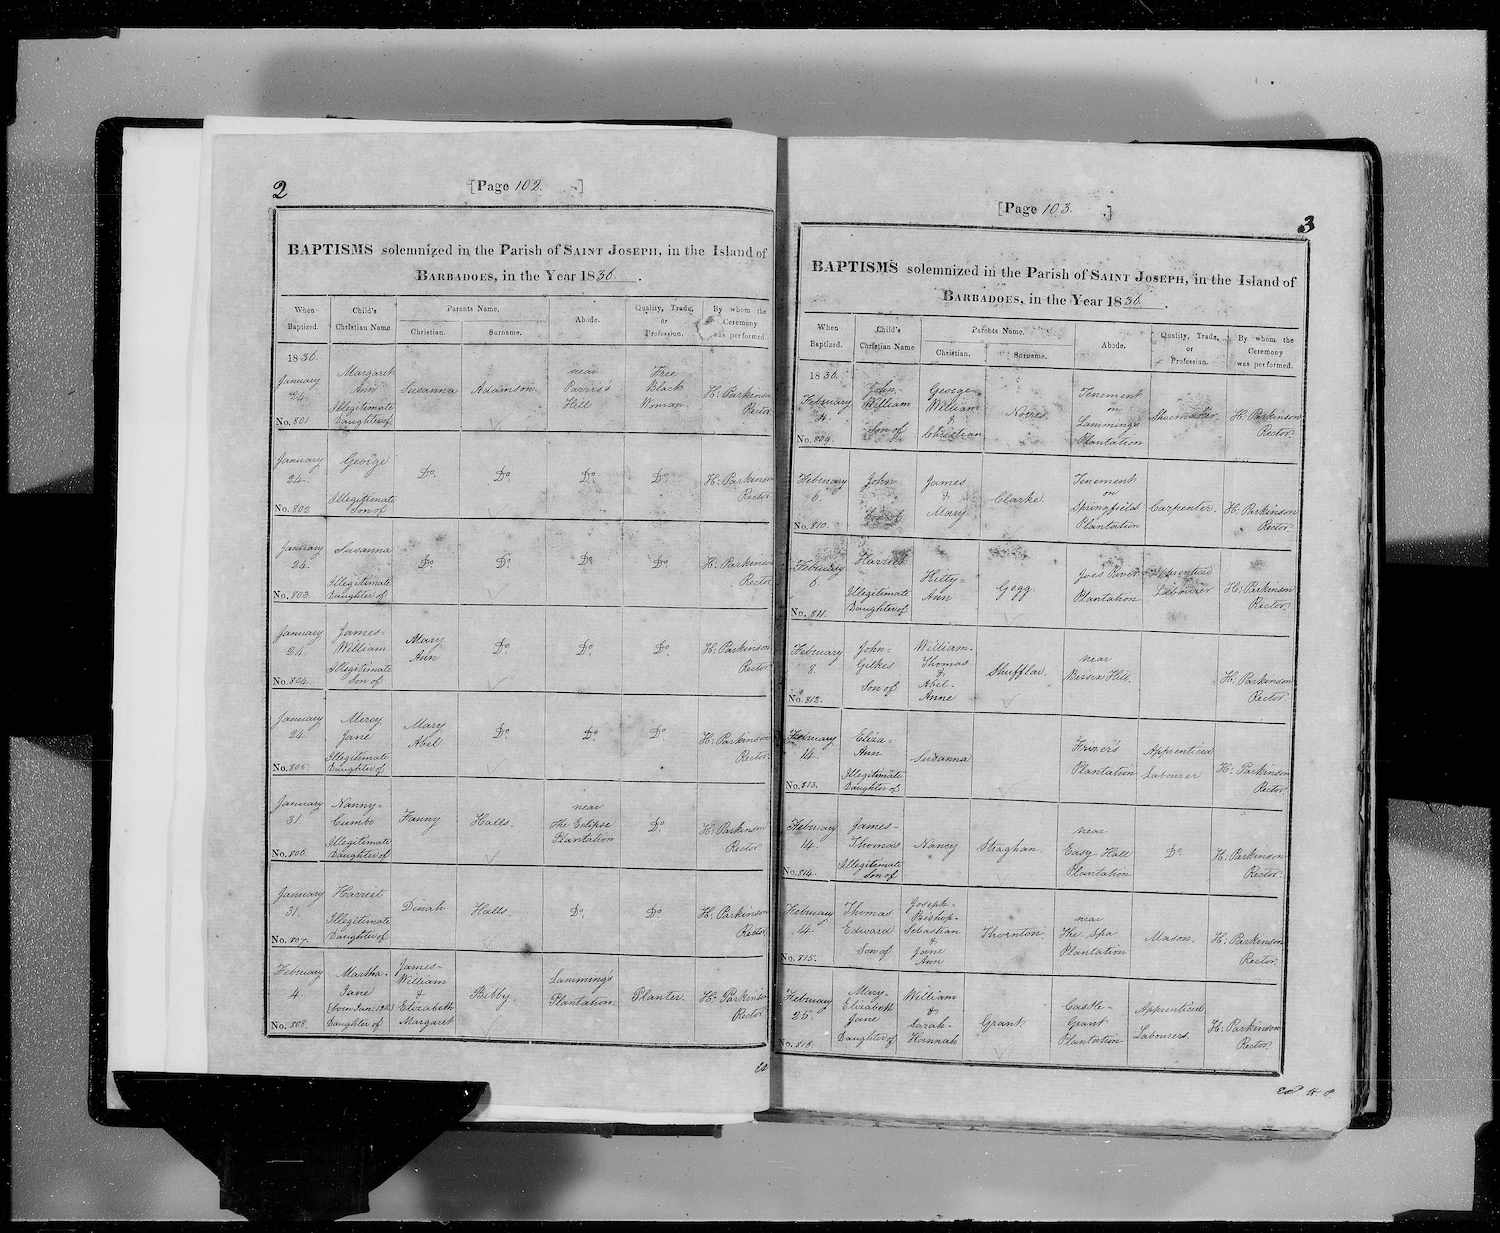 2
[Page 102. ]
BAPTISMS solemnized in the Parish of SAINT JOSEPH, in the Island of
BARBADOES, in the Year 1836.
When Baptized. Child's Christian Name Parents Name. Christian. Surname. Abode. Quality, Trade, or Profession. By whom the Ceremony was performed.
1836.
January 24. No. 801 Margaret Ann Illegitimate Daughter of Susanna Adamson near Hill Free Black Woman H: Parkinson Rector
January 24. No. 802 George Illegitimate Son of Do. Do. Do. Do. H: Parkinson Rector
January 24. No. 803. Susanna Illegitimate Daughter of Do. Do. Do. Do. H: Parkinson Rector
January 24. No. 804. James William Illegitimate Son of Mary Ann Do. Do. Do. H: Parkinson Rector
January 24. No. 805 Mercy Jane Illegitimate Daughter of Mary Abel Do. Do. Do. H: Parkinson Rector.
January 31. No. 806. Nanny-Cumbo Illegitimate Daughter of Fanny Halls. near The Eclipse Plantation Do. H: Parkinson Rector
January 31. No. 807. Harriet Illegitimate Daughter of Dinah Halls. Do. Do. H: Parkinson Rector
February 4. No. 808. Martha-Jane Daughter of James-William & Elizabeth Margaret Bibby. Lamming's Plantation Planter. H: Parkinson Rector.
[Page 103. ]
3
BAPTISMS solemnized in the Parish of SAINT JOSEPH, in the Island of
BARBADOES, in the Year 1836.
When Baptized. Child's Christian Name Parents Name. Christian. Surname. Abode. Quality, Trade, or Profession. By whom the Ceremony was performed.
1836.
February 4. No. 809. John William Son of George William & Christian Tenement on Lamming's Plantation Shoemaker. H: Parkinson Rector.
February 6. No. 810. John Son of James & Mary Clarke. Tenement on Springfield Plantation Carpenter. H: Parkinson Rector.
February 6. No. 811. Harriet Illegitimate Daughter of Kitty-Ann Gogg Joes River Plantation Apprenticed Labourer H: Parkinson Rector.
February 8. No. 812. John-Gilkes Son of William-Thomas & Abel-Anne Shufflar. near Hill. H: Parkinson Rector.
February 14. No. 813. Eliza-Ann Illegitimate Daughter of Susanna Frizer's Plantation Apprenticed Labourer H: Parkinson Rector.
February 14. No. 814. James-Thomas Illegitimate Son of Nancy Straghan. near Easy Hall Plantation Do. H: Parkinson Rector.
February 14. No. 815. Thomas Edward Son of Joseph-Bishop-Sebastian & Jane Ann Thornton. near The Spa Plantation Mason. H: Parkinson Rector.
February 25. No. 816. Mary-Elizabeth Jane Daughter of William & Sarah-Hannah Grant. Castle-Grant Plantation Apprenticed Labourers. H: Parkinson Rector.